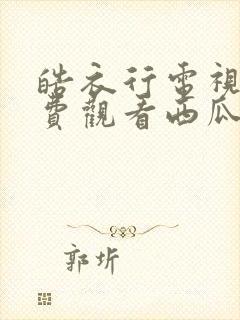 皓衣行電視
費觀看西瓜
郭圻